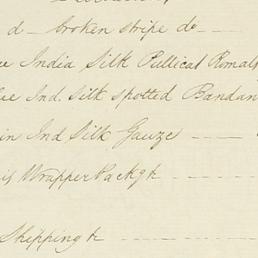 d — broken stripe do —
India Silk Pullicat Romals
Ind. Silk spotted Bandan
in Ind Silk Gauze ———
is Wrapper Packgh ———
Shippingh ———